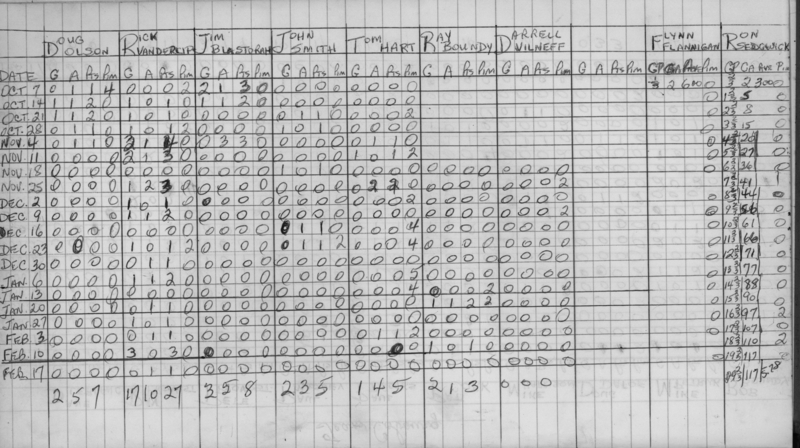 DOUG OLSON RICK VANDERCLIP JIM BLASTORAH JOHN SMITH TOM HART RAY BOUNDY DARRELL VILNEFF FLYNN FLANNIGAN RON SEDGWICK
DATE G A Pts Pim G A Pts Pim G A Pts Pim G A Pts Pim G A Pts Pim G A Pts Pim G A Pts Pim G A Pts Pim GP GA Ave Pim GP GA Ave Pim
OCT. 7 0 1 1 4 0 0 0 2 2 1 3 0 0 0 0 0 0 0 0 0
OCT. 14 0 1 1 2 0 1 0 1 0 1 1 2 0 0 0 0 0 0 0 0 0 5 0
OCT. 21 0 0 8 0
OCT. 28 0 1 1 0 1 0 1 2 0 0 0 0 1 0 1 0 0 0 0 0 0 15 0
NOV. 4 0 1 1 0 0 3 3 0 0 0 0 0 0 1 1 0
NOV. 11 0 0 0 0 2 1 3 0 0 0 0 0 0 0 0 0 1 0 1 2 27 0
NOV. 18 0 0 0 0 36
NOV. 25 0 0 0 0 1 2 3 0 0 0 0 0 0 0 0 0 0 0 0 0 0 0 0 2 41
DEC. 2 0 0 0 0 1 0 1 0 0 0 0 0 0 0 0 0 0 0 0 2 0 0 0 0 0 0 0 0 44
DEC. 9 0 0 0 0 1 1 2 0 0 0 0 0 0 0 0 0 0 0 0 0 0 0 0 0 0 0 0 2 56 0
DEC 16 0 0 0 0 0 0 0 0 0 0 0 0 0 1 1 0 0 0 0 4 0 0 0 0 0 0 0 0 61 0
DEC. 23 0 0 0 0 1 0 1 2 0 0 0 0 0 1 1 2 0 0 0 4 0 0 0 0 0 0 0 0 66 0
DEC 30 0 0 0 0 0 1 1 0 0 0 0 0 0 0 0 0 0 0 0 0 0 0 0 0 0 0 0 0 71 0
JAN. 6 0 0 0 0 1 1 2 0 0 0 0 0 0 0 0 0 0 0 0 5 0 0 0 0 0 0 0 0 77 0
JAN. 13 0 0 0 0 0 0 0 0 0 0 0 0 0 0 0 0 0 0 0 4 0 0 0 2 0 0 0 0 88 0
JAN. 20 0 0 0 0 0 1 1 0 0 0 0 0 0 0 0 0 0 0 0 0 1 1 2 2 0 0 0 0 90 0
JAN. 27 0 0 0 0 1 0 1 0 0 0 0 0 0 0 0 0 0 0 0 0 0 0 0 0 0 0 0 0 97 2
FEB. 3 0 0 0 0 0 1 1 0 0 0 0 0 0 0 0 0 0 1 1 2 0 0 0 0 0 0 0 0 107 0
FEB. 10 0 0 0 0 3 0 3 0 0 0 0 0 0 0 0 0 0 0 0 0 1 0 1 0 0 0 0 0 110 2
FEB. 17 0 0 0 0 0 1 1 0 0 0 0 0 0 0 0 0 0 0 0 0 0 0 0 0 0 0 0 0 0
2 5 7 17 10 27 3 5 8 2 3 5 1 4 5 2 1 3 0 0 0 117 5.78